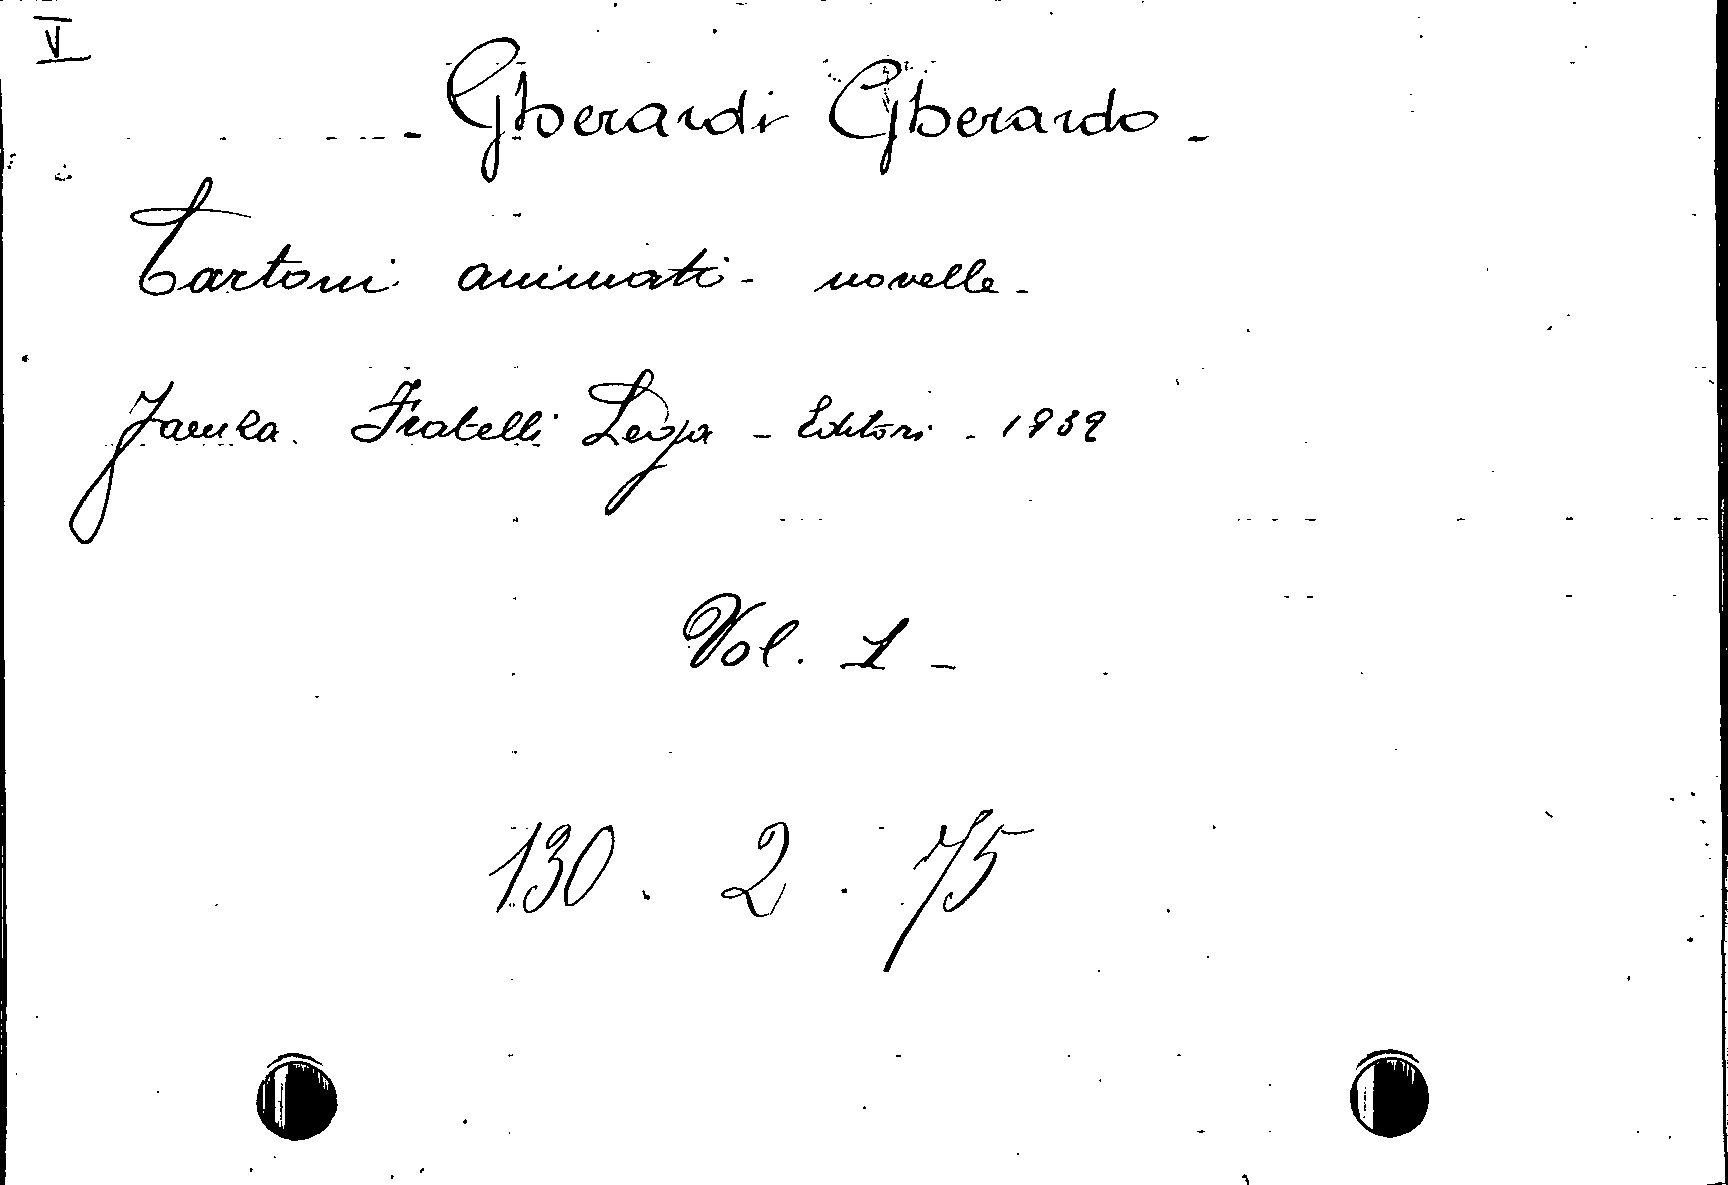 V
- Gherardi Gherardo -
Cartoni animati - novelle -
Faenza. Fratelli Lega - Editori - 1932
Vol. 1 -
130. 2. 75